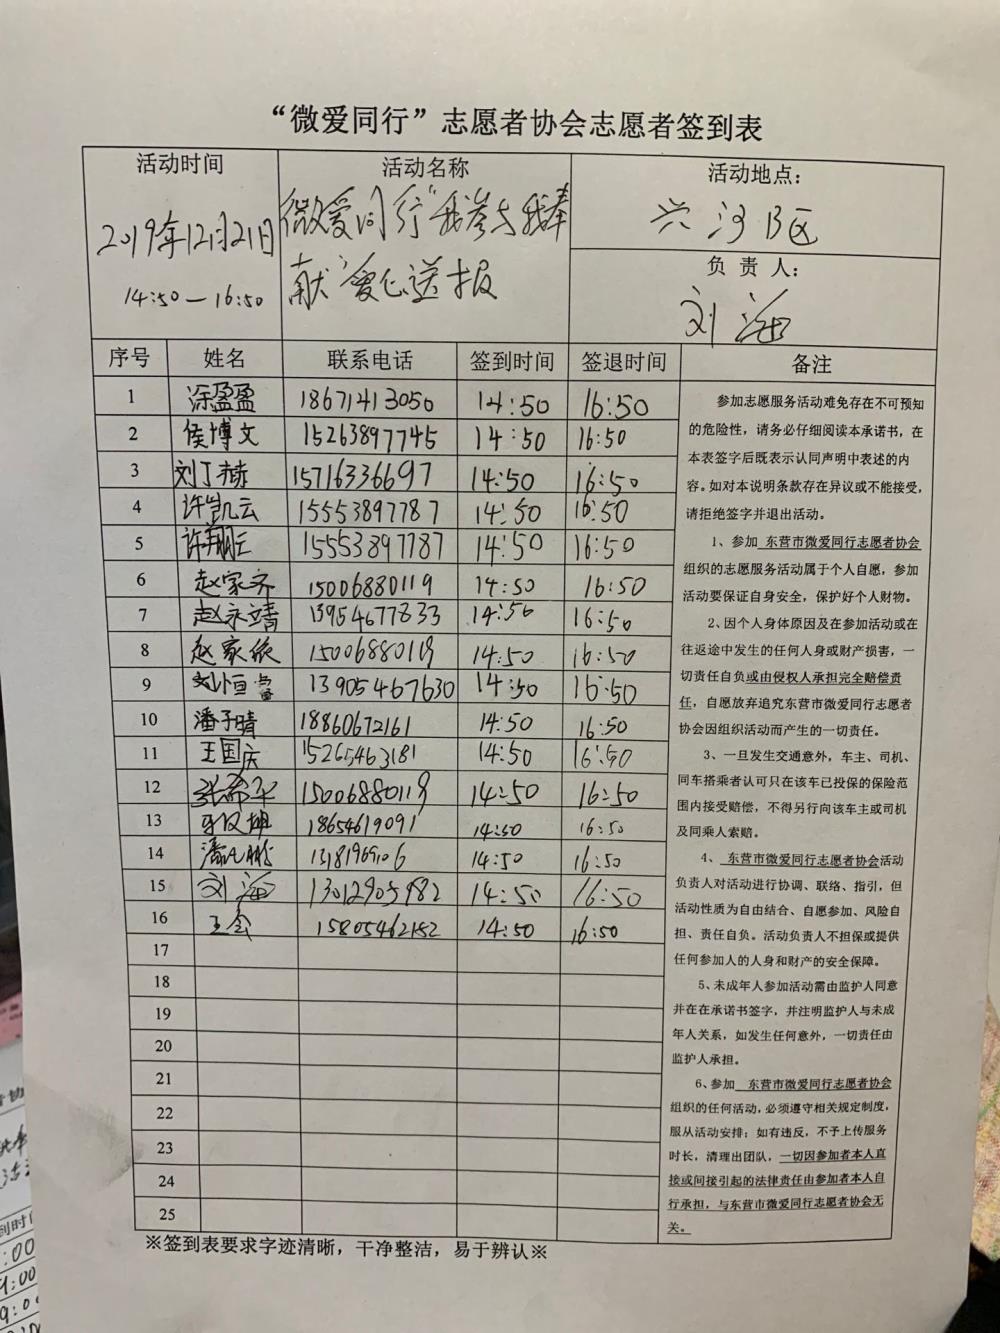 “微爱同行”志愿者协会志愿者签到表
活动时间
2019年12月21日
14:50—16:50
活动名称
微爱同行“我参与我奉
献”爱心送报
活动地点：
兴河B区
负 责 人：
刘海
序号 姓名 联系电话 签到时间 签退时间 备注
1 涂盈盈 18671413050 14:50 16:50
2 侯博文 15263897745 14:50 16:50
3 刘丁赫 15716336697 14:50 16:50
4 许凯云 15553897787 14:50 16:50
5 许翔云 15553897787 14:50 16:50
6 赵家齐 15006880119 14:50 16:50
7 赵永靖 13954677833 14:50 16:50
8 赵家依 15006880119 14:50 16:50
9 刘恒 13905467630 14:50 16:50
10 潘子晴 18860672161 14:50 16:50
11 王国庆 15265463181 14:50 16:50
12 15006880119 14:50 16:50
13 18654619091 14:50 16:50
14 14:50 16:50
15 刘海 13012905982 14:50 16:50
16 王会 15805462152 14:50 16:50
17
18
19
20
21
22
23
24
25
参加志愿服务活动难免存在不可预知
的危险性，请务必仔细阅读本承诺书，在
本表签字后既表示认同声明中表述的内
容。如对本说明条款存在异议或不能接受，
请拒绝签字并退出活动。
1、参加 东营市微爱同行志愿者协会
组织的志愿服务活动属于个人自愿，参加
活动要保证自身安全，保护好个人财物。
2、因个人身体原因及在参加活动或在
往返途中发生的任何人身或财产损害，一
切责任自负或由侵权人承担完全赔偿责
任，自愿放弃追究东营市微爱同行志愿者
协会因组织活动而产生的一切责任。
3、一旦发生交通意外，车主、司机、
同车搭乘者认可只在该车已投保的保险范
围内接受赔偿，不得另行向该车主或司机
及同乘人索赔。
4、 东营市微爱同行志愿者协会活动
负责人对活动进行协调、联络、指引，但
活动性质为自由结合、自愿参加、风险自
担、责任自负。活动负责人不担保或提供
任何参加人的人身和财产的安全保障。
5、未成年人参加活动需由监护人同意
并在在承诺书签字，并注明监护人与未成
年人关系，如发生任何意外，一切责任由
监护人承担。
6、参加 东营市微爱同行志愿者协会
组织的任何活动，必须遵守相关规定制度，
服从活动安排；如有违反，不予上传服务
时长，清理出团队，一切因参加者本人直
接或间接引起的法律责任由参加者本人自
行承担，与东营市微爱同行志愿者协会无
关。
※签到表要求字迹清晰，干净整洁，易于辨认※